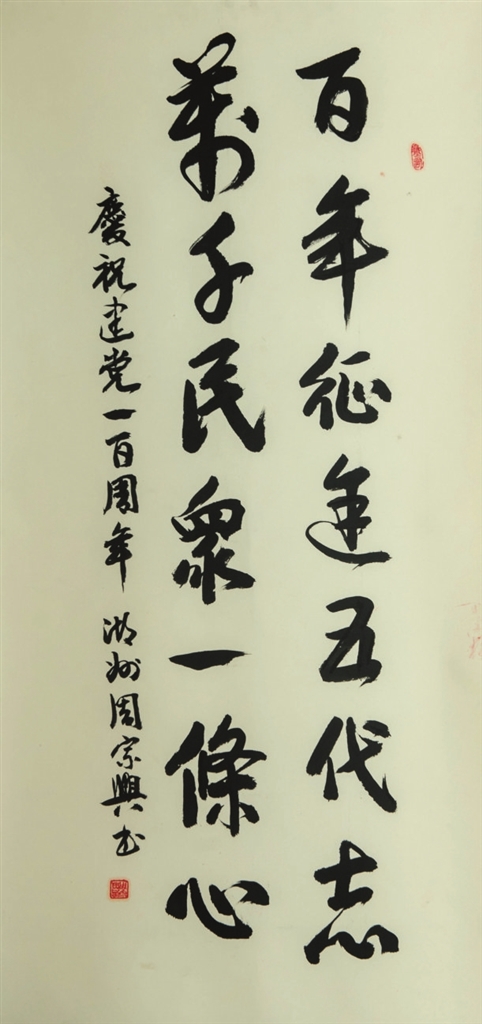 百年征途五代志
萬千民衆一條心
慶祝建党一百周年 湖州周宗興书